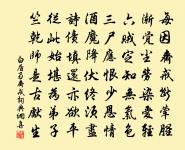 每因齋戒斷葷腥
漸覺塵勞染愛輕
六賊定知無氣色
三尸應恨少恩情
酒魔降伏終須盡
詩債填還亦欲平
從此始堪為弟子
竺乾師是古先生
白居易齋戒詞典網